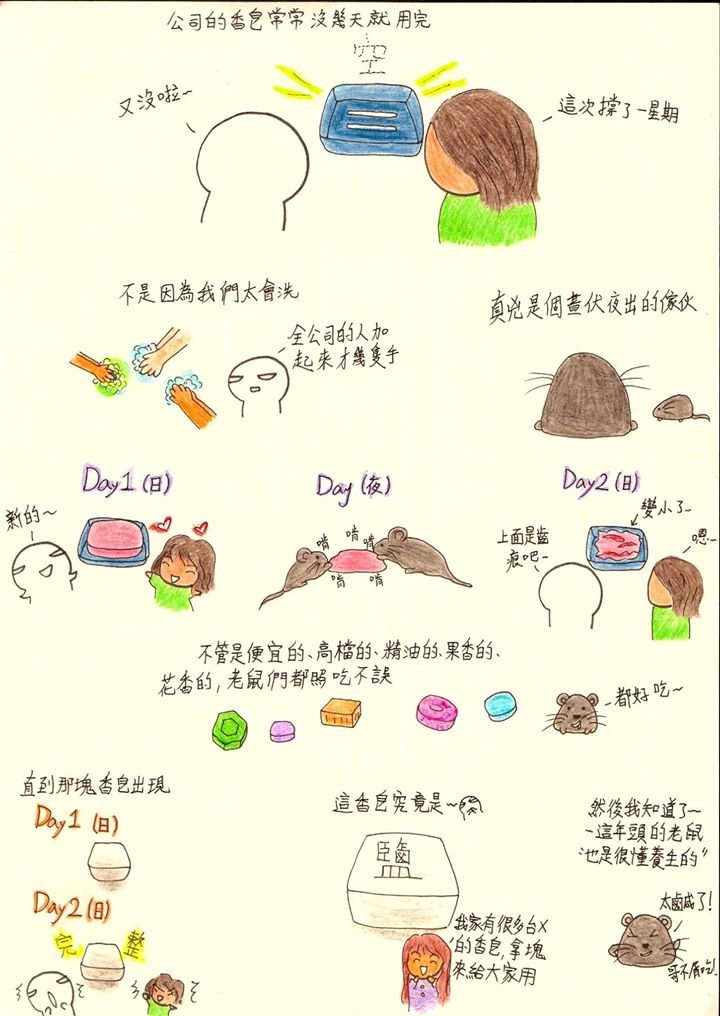 公司的香皂常常沒幾天就用完
空
又沒啦~
這次撐了一星期
不是因為我們太會洗
全公司的人加
起來才幾隻手
真兇是個晝伏夜出的傢伙
Day1(日)
新的~
Day(夜)
啃 啃 啃
啃 啃
Day2(日)
變小了~
上面是齒
痕吧~
嗯~
不管是便宜的、高檔的、精油的、果香的、
花香的,老鼠們都照吃不誤
都好吃~
直到那塊香皂出現
Day1(日)
Day2(日)
完 整
這香皂究竟是~
我家有很多台X
的香皂,拿塊
來給大家用
然後我知道了~
這年頭的老鼠
也是很懂養生的"
太鹹了!
哥不屑吃!